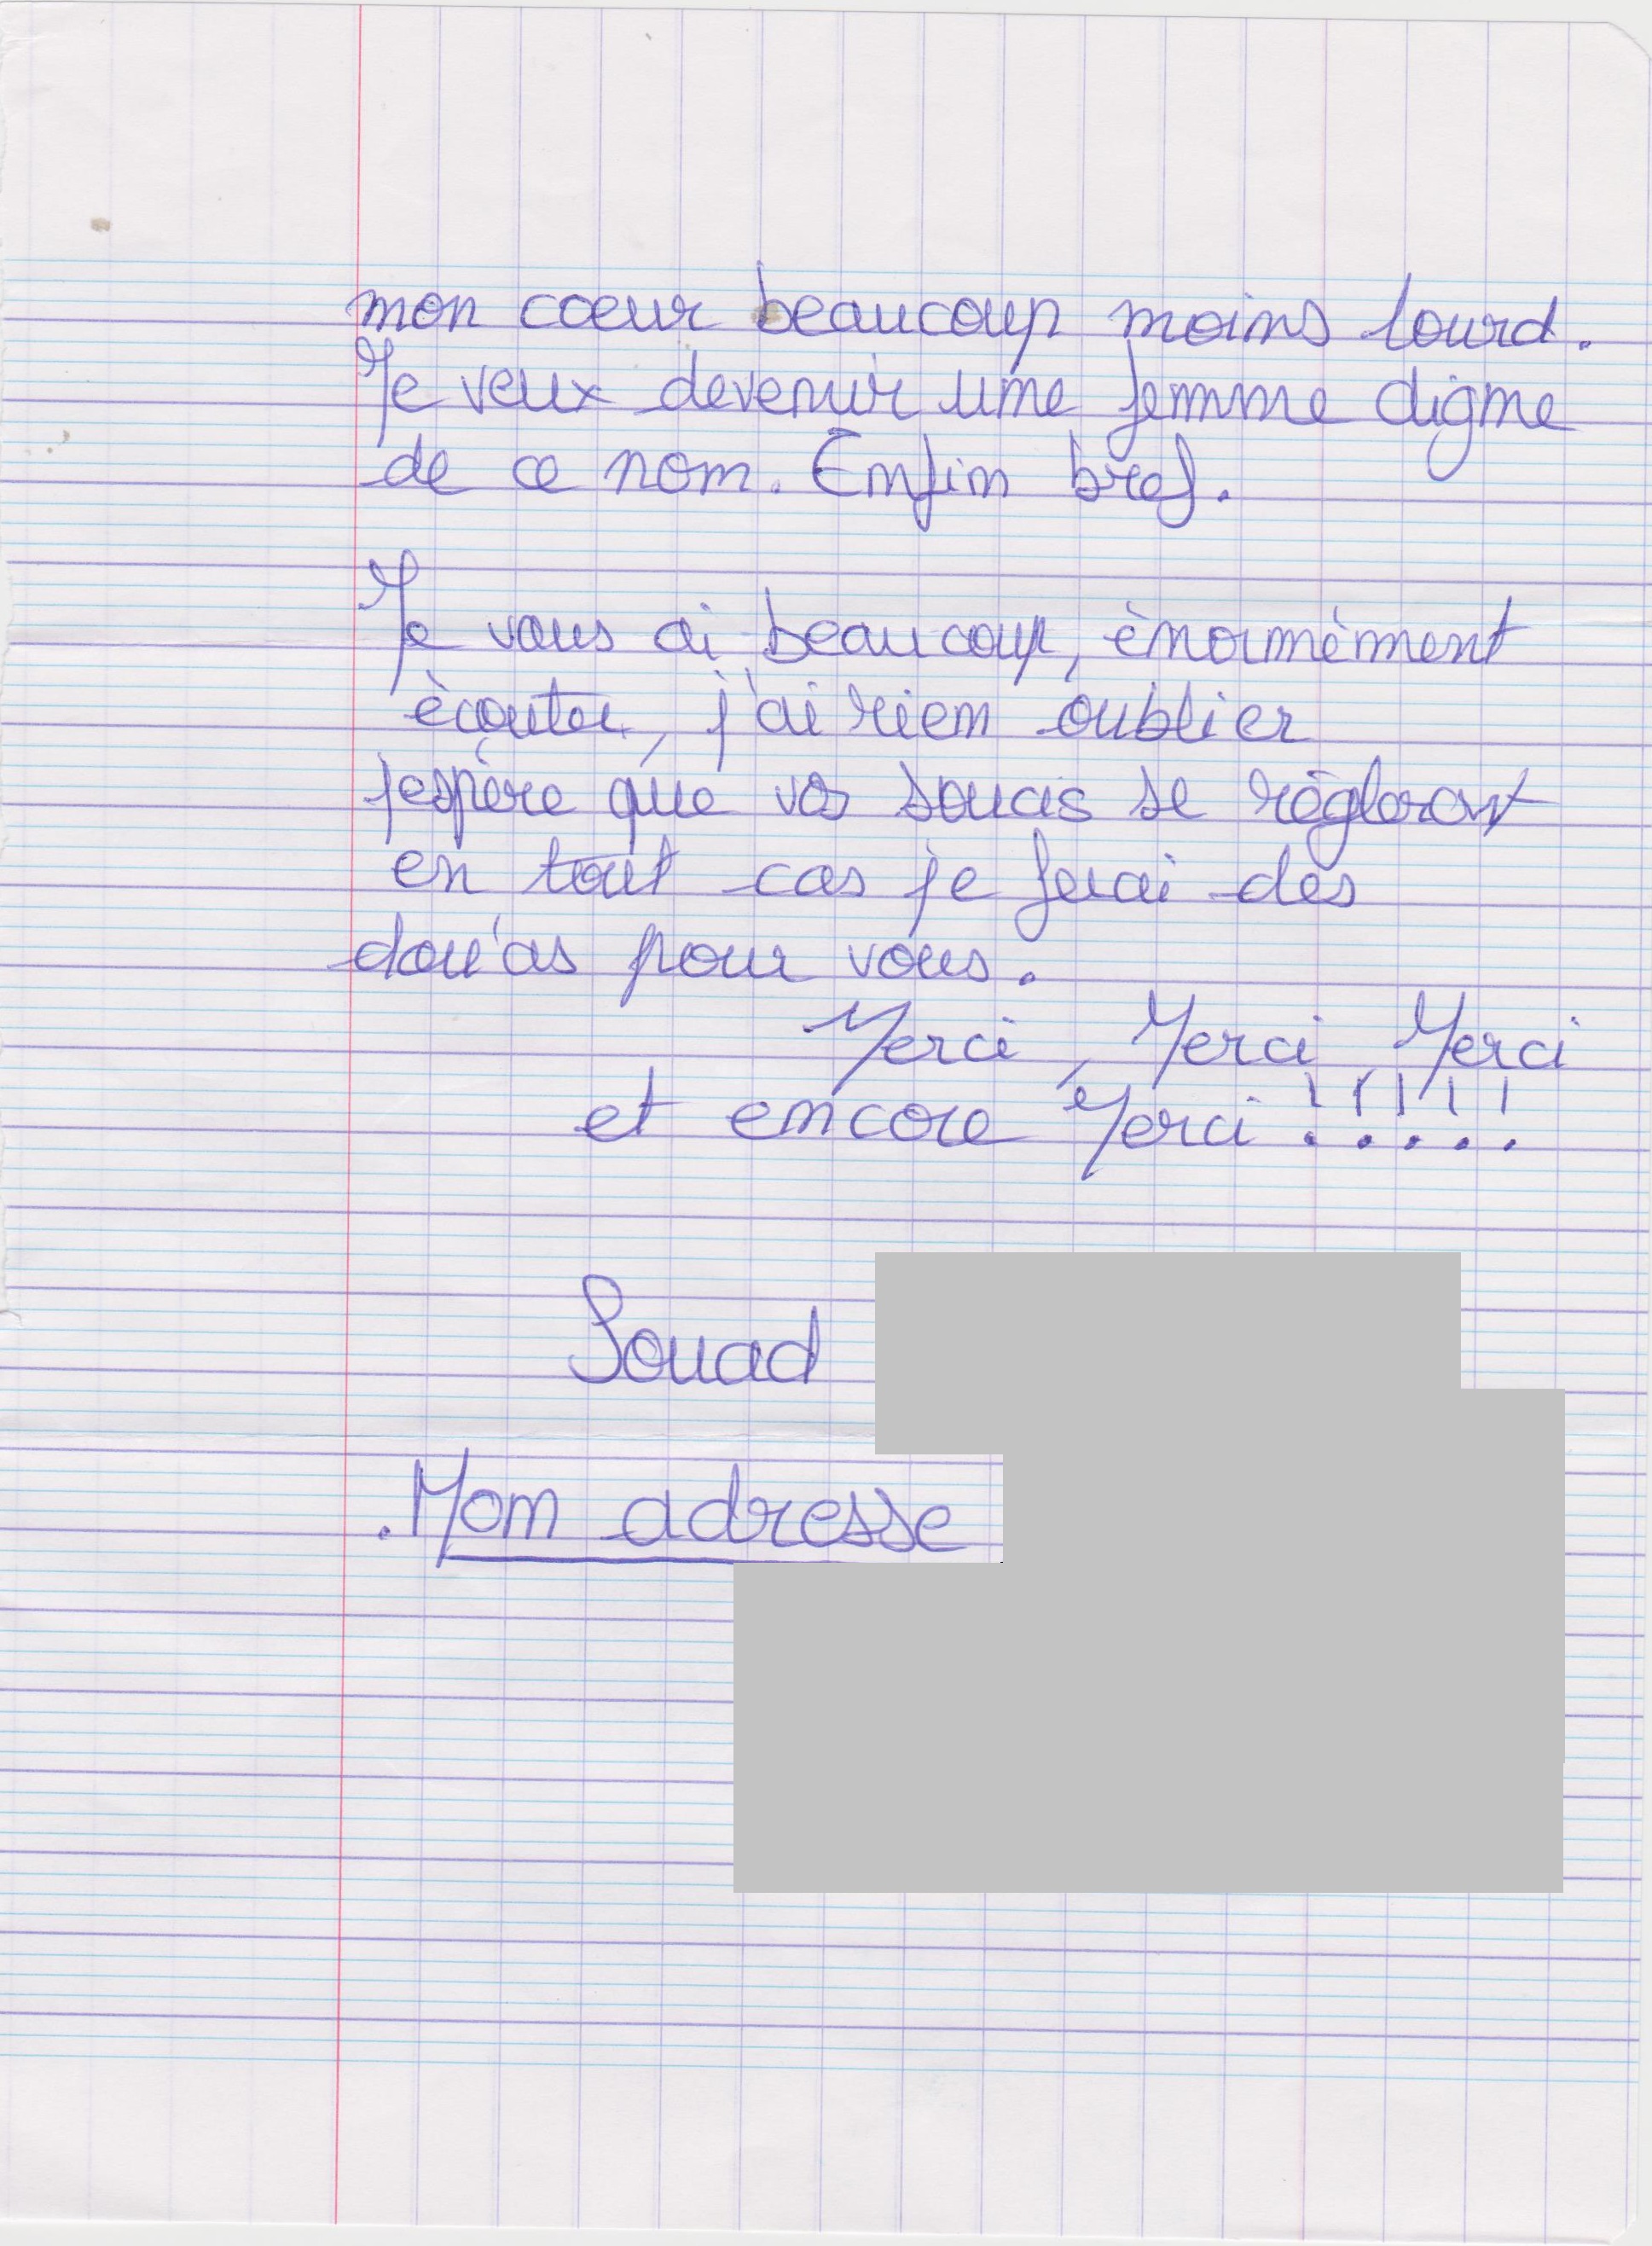 mon coeur beaucoup moins lourd.
Je veux devenir une femme digne
de ce nom. Enfin bref.
Je vous ai beaucoup, ènormèment
ècouter, j'ai rien oublier
j'espère que vos soucis se règleront
en tout cas je ferai des
dou'as pour vous.
Merci, Merci Merci
et encore Merci !!!!!
Souad
. Mon adresse